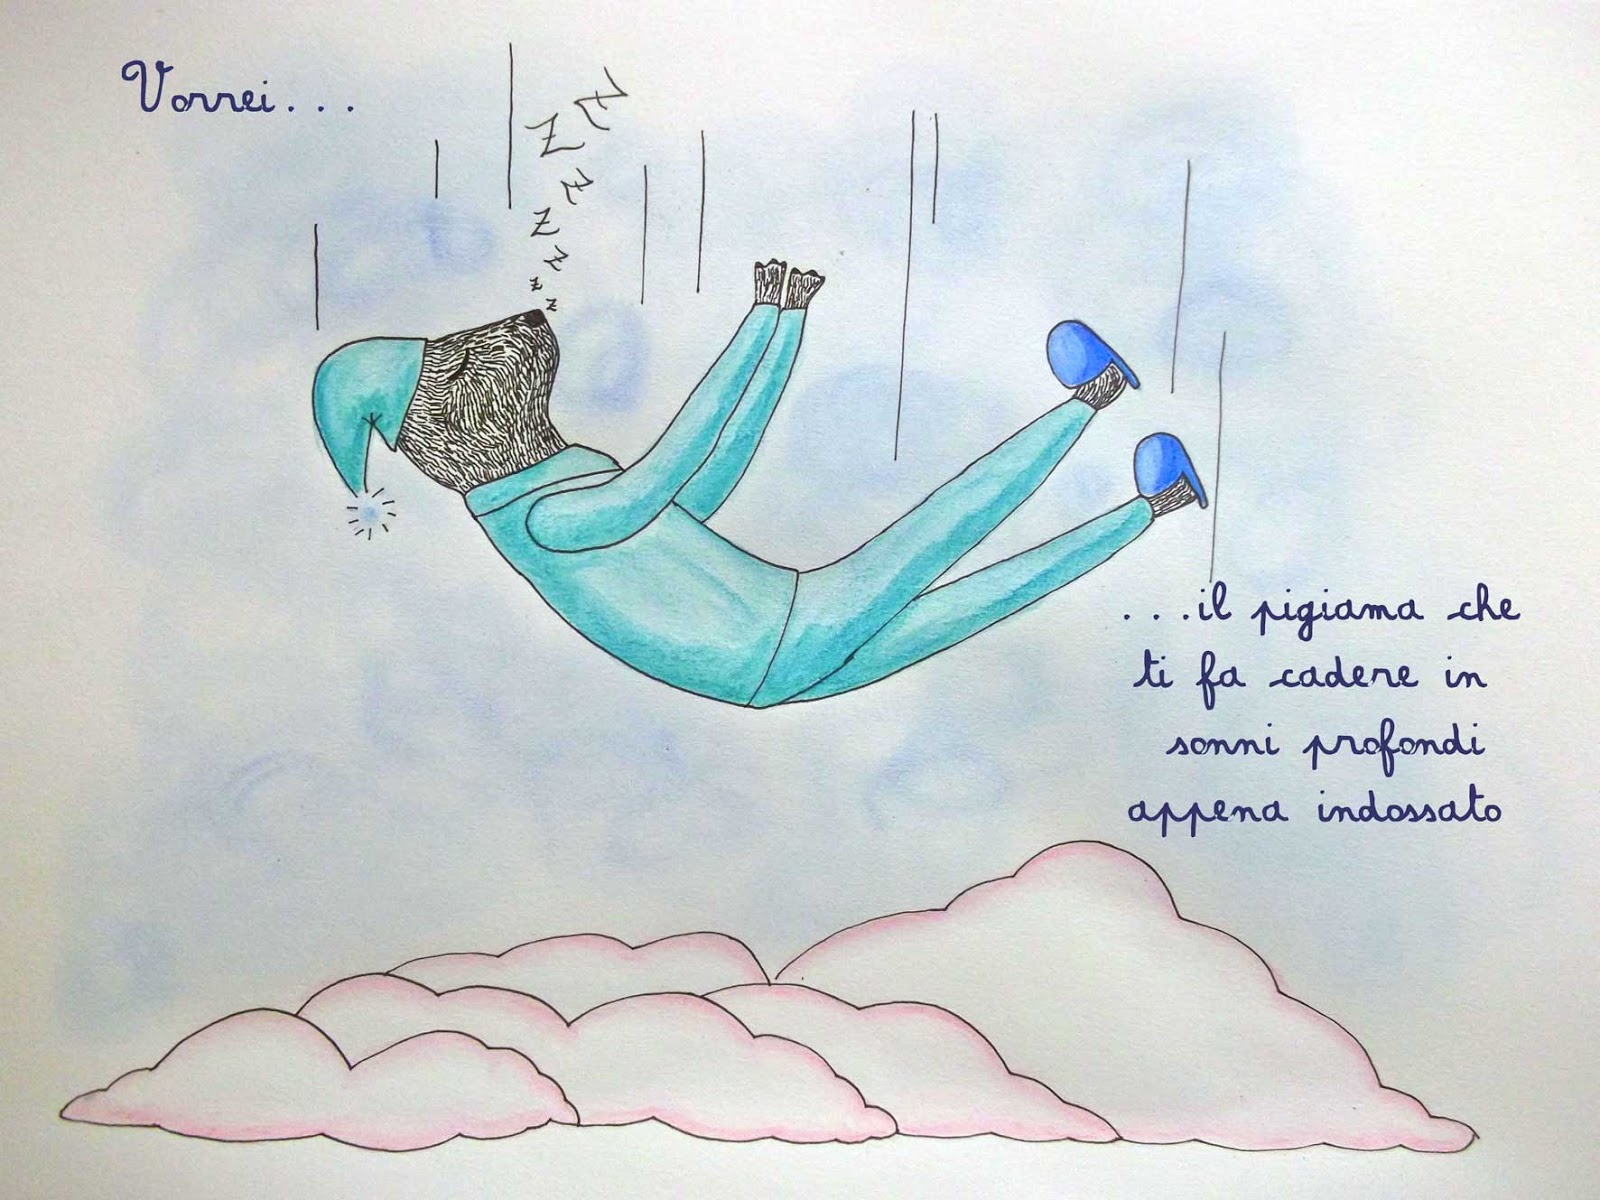 Vorrei...
Z
Z
Z
Z
Z
z
z
...il pigiama che
ti fa cadere in
sonni profondi
appena indossato